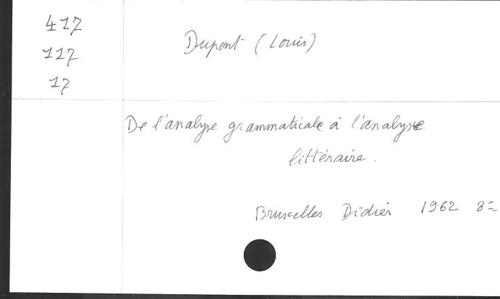 417
117
17
Dupont (Louis)
De l'analyse grammaticale à l'analyse
littéraire.
Bruxelles Didier 1962 8º